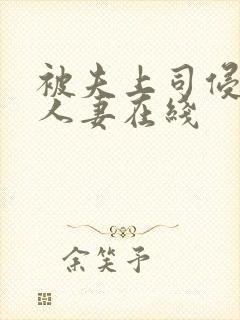 被夫上司侵
人妻在线
余笑予